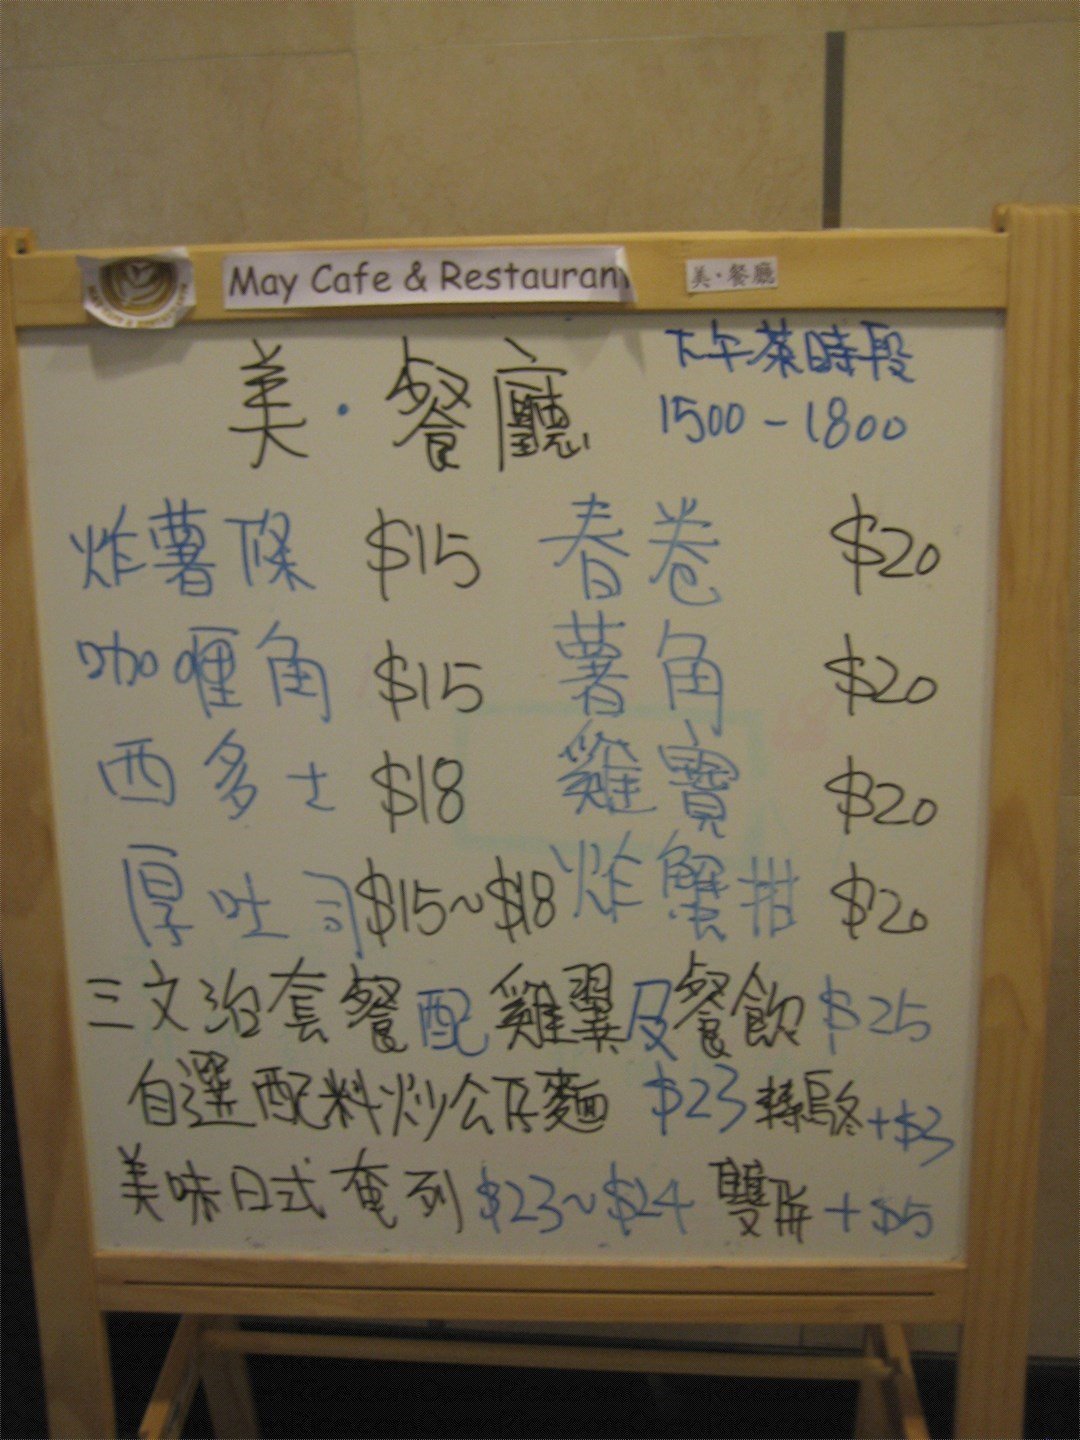 May Cafe & Restaurant
美·餐廳
美·餐廳
下午茶時段
1500-1800
炸薯條 $15 春卷 $20
咖喱角 $15 薯角 $20
西多士 $18 雞寶 $20
厚吐司 $15~$18 炸蟹柑 $20
三文治套餐配雞翼及餐飲 $25
自選配料炒公仔麵 $23 轉烏冬+$3
美味日式奄列 $23~$24 雙拼+$5